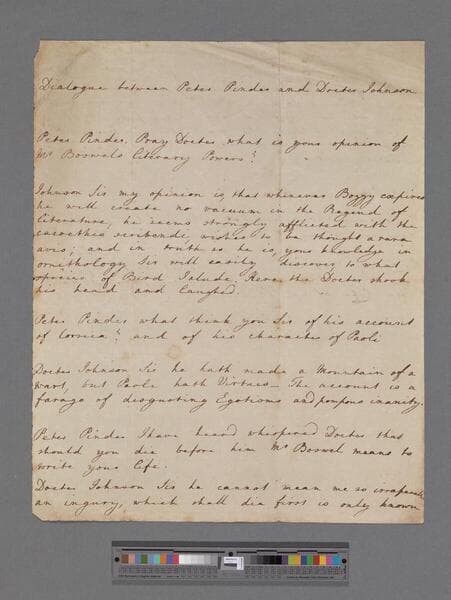 Dialogue between Peter Pindar and Docter Johnson
Peter Pindar. Pray Docter what is your opinion of
Mr Boswels literary Powers?
Johnson Sir my opinion is, that whenever Bozzy expires
he will create no vacuum in the Region of
literature, he seems strongly afflicted with the
cacoethes scribendi wishes to be thought a rara
avis; and in truth so he is, your knowledge in
ornithology Sir will easily discover to what
species of Bird I alude, Here the Docter shook
his head and laughed
Peter Pindar what think you Sir of his account
of Corsica? and of his character of Paoli
Docter Johnson Sir he hath made a Mountain of a
wart, but Paoli hath Virtues— The account is a
farago of disgusting Egotisms and pompous inanity.
Peter Pindar I have heard whispered Docter that
should you die before him Mr Boswel means to
write your life.
Docter Johnson Sir he cannot mean me so irreparable
an ingury, which shall die first is only known